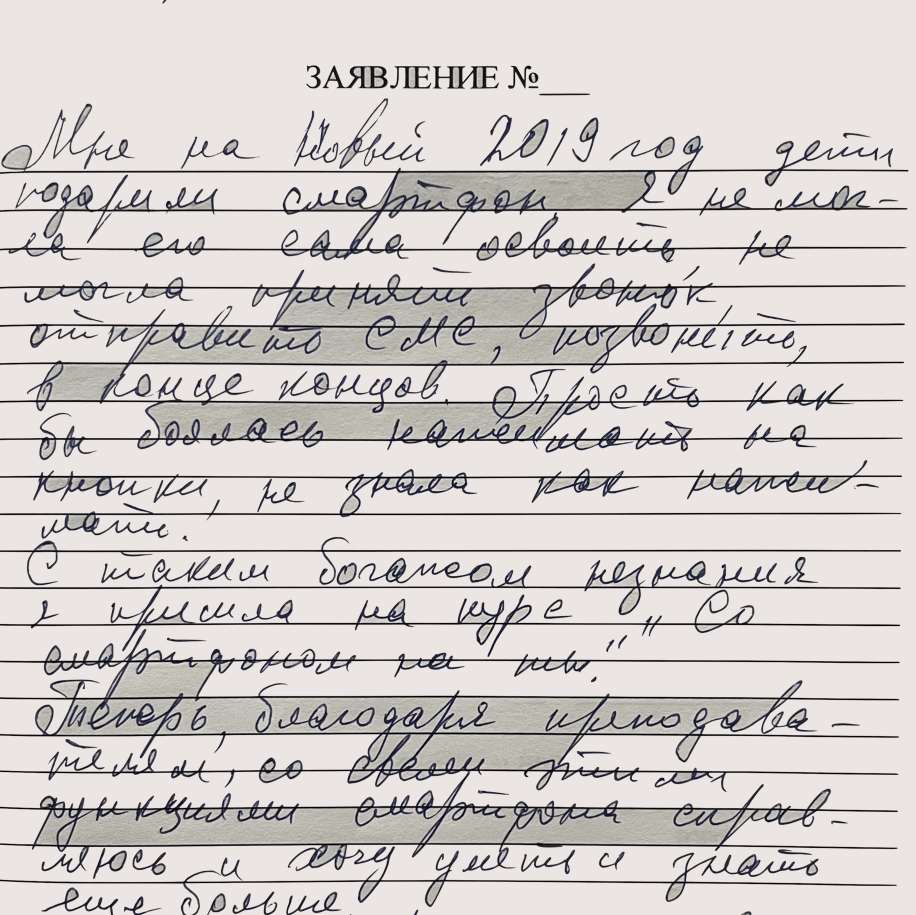 ЗАЯВЛЕНИЕ №___
Мне на Новый 2019 год дети
подарили смартфон. Я не мог-
ла его сама освоить, не
могла принять звонок,
отправить СМС, позвонить,
в конце концов. Просто как
бы боялась нажимать на
кнопки, не знала как нажи-
мать.
С таким богажом незнания
я пришла на курс „Со
смартфоном на ты."
Теперь, благодаря преподава-
телям, со всеми этими
функциями смартфона справ-
ляюсь и хочу уметь и знать
еще больше.